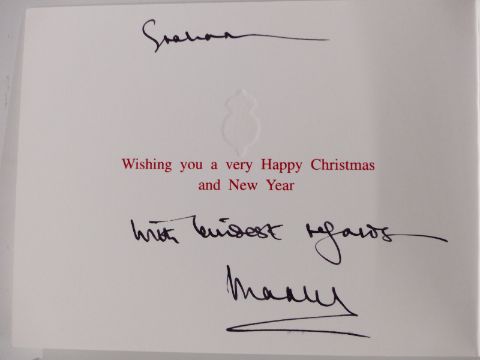 Graham
Wishing you a very Happy Christmas
and New Year
With kindest regards